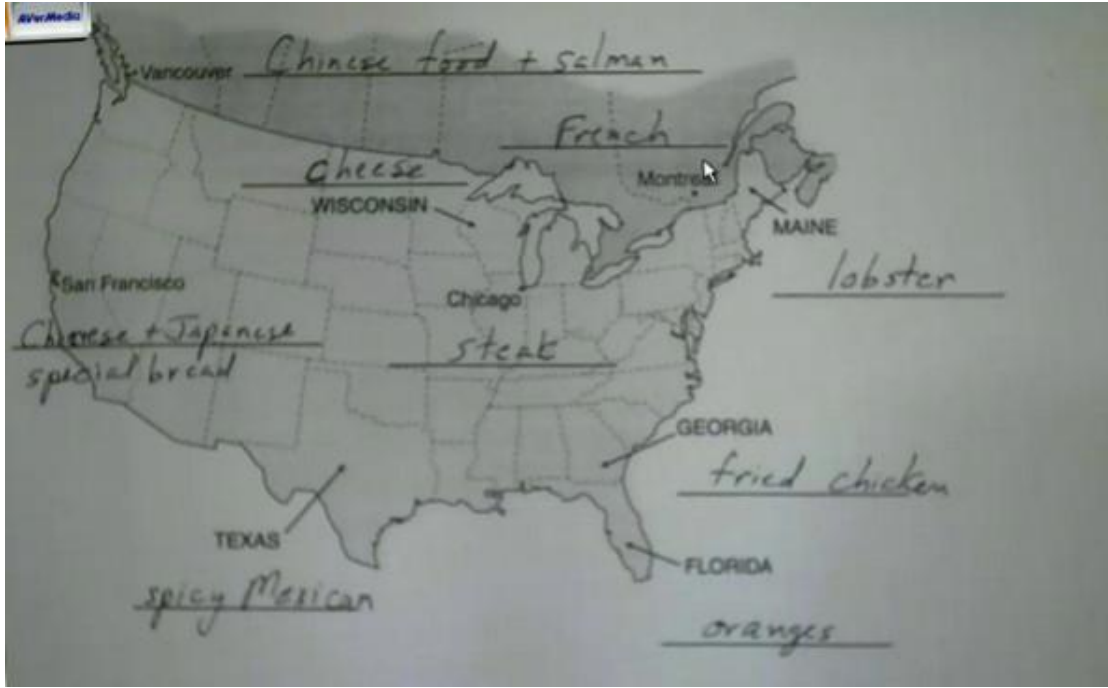 AVerMedia
Vancouver Chinese food + salman
French
Montreal
cheese
WISCONSIN
MAINE
lobster
San Francisco
Chicago
Chinese + Japanese
special bread
steak
GEORGIA
fried chicken
TEXAS
spicy Mexican
FLORIDA
oranges